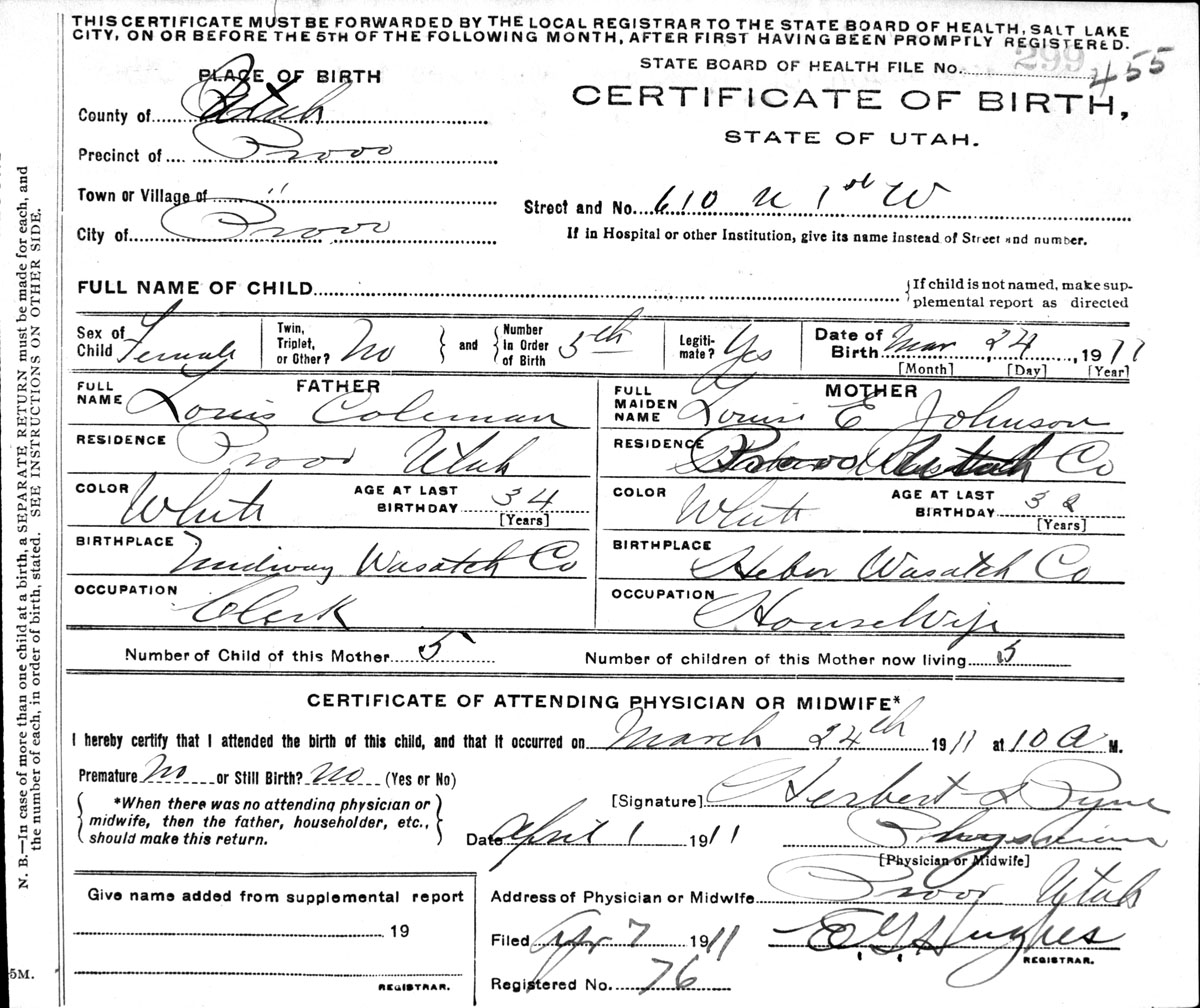 THIS CERTIFICATE MUST BE FORWARDED BY THE LOCAL REGISTRAR TO THE STATE BOARD OF HEALTH, SALT LAKE
CITY, ON OR BEFORE THE 5TH OF THE FOLLOWING MONTH, AFTER FIRST HAVING BEEN PROMPTLY REGISTERED.
STATE BOARD OF HEALTH FILE No. 299 455
PLACE OF BIRTH
CERTIFICATE OF BIRTH,
STATE OF UTAH.
County of Utah
Precinct of Provo
Town or Village of "
Street and No. 610 N 1st W
City of Provo
If in Hospital or other Institution, give its name instead of Street and number.
FULL NAME OF CHILD
If child is not named, make sup-
plemental report as directed
Sex of Child Female
Twin, Triplet, or Other? No
and
Number in Order of Birth 5th
Legiti-mate? Yes
Date of Birth Mar 24, 1911
[Month] [Day] [Year]
FATHER
FULL NAME Louis Coleman
RESIDENCE Provo Utah
COLOR White AGE AT LAST BIRTHDAY 34
[Years]
BIRTHPLACE Midway Wasatch Co
OCCUPATION Clerk
MOTHER
FULL MAIDEN NAME Louise E Johnson
RESIDENCE Provo Co
COLOR White AGE AT LAST BIRTHDAY 32
[Years]
BIRTHPLACE Heber Wasatch Co
OCCUPATION HouseWife
Number of Child of this Mother 5 Number of children of this Mother now living 5
CERTIFICATE OF ATTENDING PHYSICIAN OR MIDWIFE*
I hereby certify that I attended the birth of this child, and that it occurred on March 24th 1911 at 10 A M.
Premature No or Still Birth? No (Yes or No)
*When there was no attending physician or
midwife, then the father, householder, etc.,
should make this return.
[Signature] Herbert S Pyne
Date April 1 1911 Physician
[Physician or Midwife]
Give name added from supplemental report
19
REGISTRAR.
Address of Physician or Midwife Provo Utah
Filed Apr 7 1911 E G Hughes
REGISTRAR.
Registered No. 76
N. B.—In case of more than one child at a birth, a SEPARATE RETURN must be made for each, and
the number of each, in order of birth, stated. SEE INSTRUCTIONS ON OTHER SIDE.
5M.